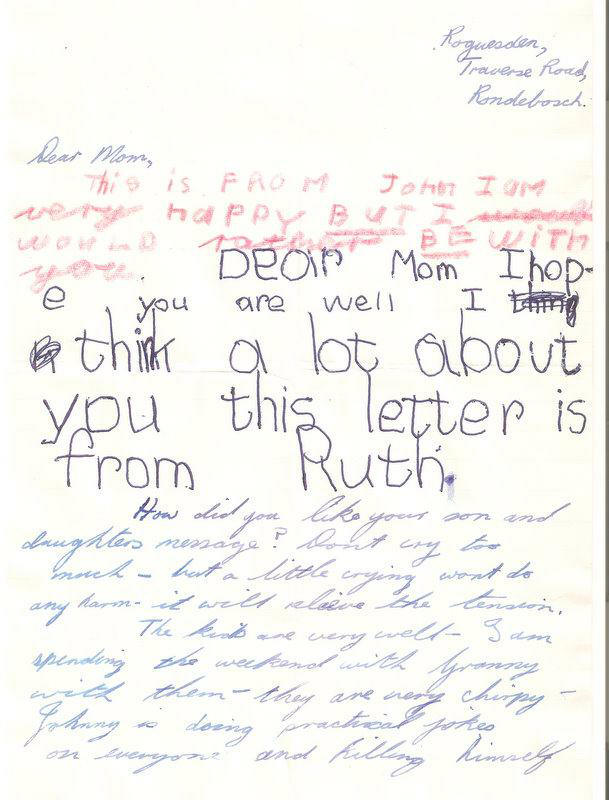 Roguesden,
Traverse Road,
Rondebosch.
Dear Mom,
This is FROM John I AM
very HAPPY BUT I
WOULD rather BE WITH
you.
DEAR Mom I hop-
e you are well I thing
think a lot about
you this letter is
from Ruth.
How did you like your son and
daughters message? Dont cry too
much - but a little crying wont do
any harm - it will releive the tension.
The kids are very well - I am
spending the weekend with Granny
with them - they are very chirpy -
Johnny is doing practical jokes
on everyone and killing himself